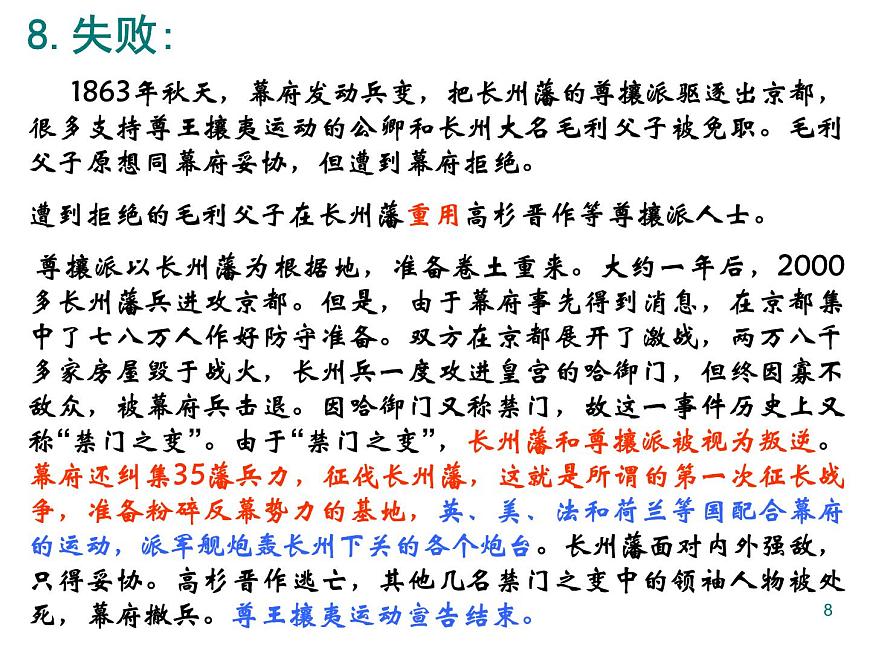 8. 失败:
1863年秋天，幕府发动兵变，把长州藩的尊攘派驱逐出京都，
很多支持尊王攘夷运动的公卿和长州大名毛利父子被免职。毛利
父子原想同幕府妥协，但遭到幕府拒绝。
遭到拒绝的毛利父子在长州藩重用高杉晋作等尊攘派人士。
尊攘派以长州藩为根据地，准备卷土重来。大约一年后，2000
多长州藩兵进攻京都。但是，由于幕府事先得到消息，在京都集
中了七八万人作好防守准备。双方在京都展开了激战，两万八千
多家房屋毁于战火，长州兵一度攻进皇宫的哈御门，但终因寡不
敌众，被幕府兵击退。因哈御门又称禁门，故这一事件历史上又
称“禁门之变”。由于“禁门之变”，长州藩和尊攘派被视为叛逆。
幕府还纠集35藩兵力，征伐长州藩，这就是所谓的第一次征长战
争，准备粉碎反幕势力的基地，英、美、法和荷兰等国配合幕府
的运动，派军舰炮轰长州下关的各个炮台。长州藩面对内外强敌，
只得妥协。高杉晋作逃亡，其他几名禁门之变中的领袖人物被处
死，幕府撤兵。尊王攘夷运动宣告结束。
8